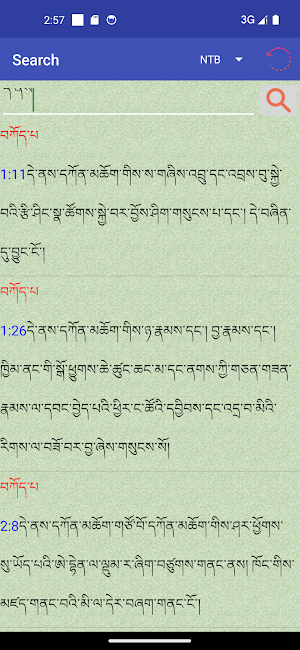 2:57
3G
Search
NTB
བཀོད་པ
1:11དེ་ནས་དཀོན་མཆོག་གིས་ས་གཞིས་འབྲུ་དང་འབྲས་བུ་སྐྱེ་
བའི་རྩི་ཤིང་སྣ་ཚོགས་སྐྱེ་བར་བྱོས་ཤིག་གསུངས་པ་དང་། དེ་བཞིན་
དུ་བྱུང་ངོ་།
བཀོད་པ
1:26དེ་ནས་དཀོན་མཆོག་གིས་ཉ་རྣམས་དང་། བྱ་རྣམས་དང་།
ཁྱིམ་ནང་གི་སྒོ་ཕྱུགས་ཆེ་ཚུང་ཚང་མ་དང་ནགས་ཀྱི་གཅན་གཟན་
རྣམས་ལ་དབང་བྱེད་པའི་ཕྱིར་ང་ཚོའི་དབྱིབས་དང་འདྲ་བ་མིའི་
རིགས་ལ་བཟོ་བར་བྱ་ཞེས་གསུངས་སོ།
བཀོད་པ
2:8དེ་ནས་དཀོན་མཆོག་གཙོ་བོ་དཀོན་མཆོག་གིས་ཤར་ཕྱོགས་
སུ་ཡོད་པའི་ཨེ་དྷེན་ལ་ལྡུམ་ར་ཞིག་བཙུགས་གནང་ནས། ཁོང་གིས་
མཛད་གནང་བའི་མི་ལ་དེར་བཞག་གནང་ངོ་།